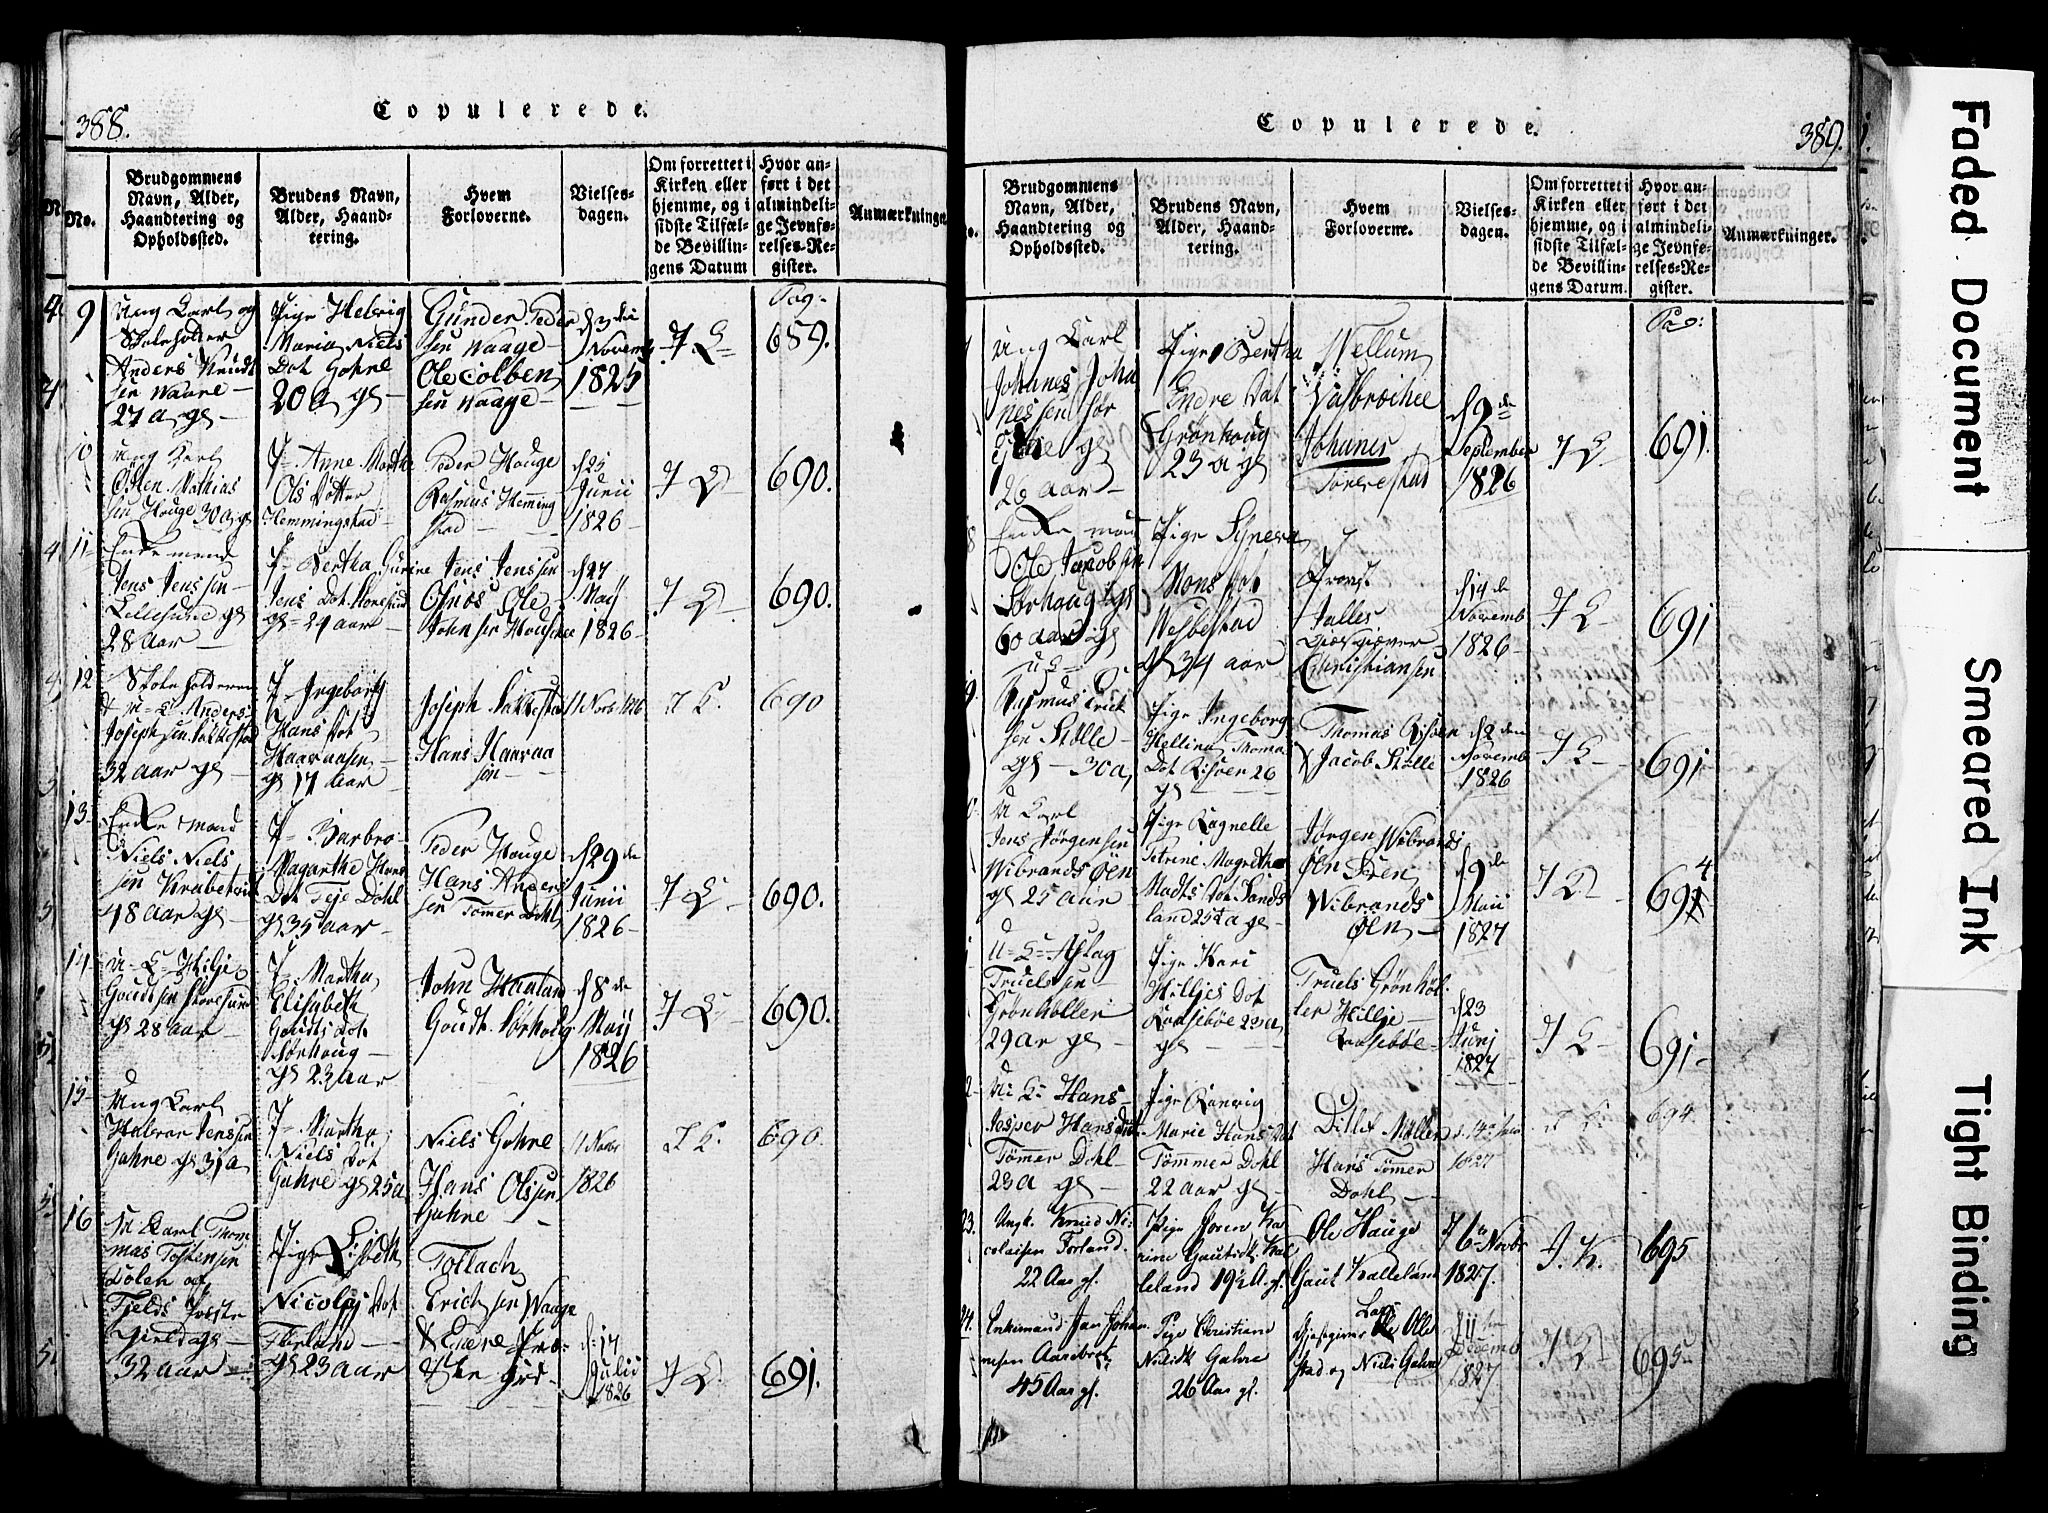 388.
Copulerede.
No.
Brudgommens
Navn, Alder,
Haandtering og
Opholdssted.
Brudens Navn,
Alder, Haand-
tering.
Hvem
Forloverne.
Vielses-
dagen.
Om forrettet i
Kirken eller
hjemme, og i
sidste Tilfæl-
de Bevillin-
gens Datum
Hvor an-
ført i det
almindeli-
ge Jevnfø-
relses-Re-
gister.
Anmærkninger
Pag.
9
Ung Karl og
Skoleholder
Anders Knudt
sen Waare
27 a gl
Pige Helvig
Maria Niels
Dot Gahne
20 A gl
Gunder Peder
sen Waage
Ole Colben
sen Waage
d 3 die
Novemb
1825
I K
689.
10
Ung Karl
Osten Mathias
sen Houge 30 a gl
P- Anne Martha
Ols Dotter
Hemmingstad
Peder Houge
Rasmus Hemming
stad
d 25
Junii
1826
I K
690.
11
Enkemand
Jens Jenssen
Lillesund gl
28 Aar
P- Bertha Gurine
Jens Dot Storesund
gl 21 aar
Jens Jenssen
Ole
Johnsen Houske
d 27
Maij
1826
I K
690.
12
Skoleholderen
Anders
Josephsen Sakkestad
32 aar gl
P- Ingeborg
Hans Dot
Haaraasen
gl 17 Aar
Joseph Sakkesta
Hans Haaraa
sen
11 Novb 1826
I K.
690
13
Enkemand
Niels Niels
sen Krabetveit
48 Aar gl
P- Barbro
Magarthe Hans
Dot Teje Dahl
gl 35 aar
Peder Houge
Hans Anders
sen Tømer Dahl
d 29 de
Junii
1826
I K
690.
14
U- K- Hilje
Goudtsen Storesund
gl 28 aar
P- Martha
Elisabeth
Goudts Dot
Sørhoug
gl 23 aar
John Hauland
Goudt Sørhoug
d 8 de
Maij
1826
I K
690.
15
Ung Karl
Halvar Jenssen
Gahne gl 31 a
P- Martha
Niels Dot
Gahne gl 25 a
Niels Gahne
Hans Olssen
Gahne
11 Novbr
1826
I K.
690.
16
U Karl Thom
mas Tostensen
Dolen og
Fjelds
32 aar
Pige Lisbeth
Nicolaj Dot
Førland
gl 23 aar
Tollach
Erichsen Waage
& Endre
d: 17
Julii
1826
I K
691.
389.
Copulerede.
Brudgommens
Navn, Alder,
Haandtering og
Opholdssted.
Brudens Navn,
Alder, Haand-
tering.
Hvem
Forloverne.
Vielses-
dagen.
Om forrettet i
Kirken eller
hjemme, og i
sidste Tilfæl-
de Bevillin-
gens Datum.
Hvor an-
ført i det
almindeli-
ge Jevnfø-
relses-Re-
gister.
Anmærkninger.
Pag:
Ung Karl
Johanes Joha
nessen Sør
gl
26 Aar
Pige Bertha
Endre Dat
Grønhoug
23 a gl
Vellum
Valbrechee
Johanes
Torrestad
d 9 de
September
1826
I K
691.
8
Enkemand
Ole Jacobsen
Sørhaug
60 Aar gl
Pige Synneva
Mons Dot
Westestad
gl 34 aar
Provst
Talles
Giæsgiæver
Christiansen
d 14 de
Novemb
1826
I K
691
9.
U K
Rasmus Erich
sen Stolle
gl 30 a
Pige Ingeborg
Hellina Thomas
Dot Risøen 26
gl
Thomas Risøen
& Jacob Stolle
d 2 den
Novemb
1826
I K
691
U Karl
Jens Jørgensen
Wibrands Øen
gl 25 aar
Pige Ragnelle
Petrine Magretha
Madts Dot Sands
land 25 a gl
Jørgen Wibrands
Øen Sven
Wibrands
Øen
d 9 de
Maii
1827
I K
4
691
U- K- Aslag
Truelssen
Grønhøller
29 Ar gl
Pige Kari
Hilljes Dot
Raasebøe 23 a
gl
Truels Grønhøl
ler Hillje
Raasebøe
d 23
Junj
1827
I K
691
2
U: K: Hans
Jesper Hanssen
Tømmer Dahl
23 a gl
Pige Ranvig
Marie Hans Dot
Tømmer Dahl
22 aar gl
Ditlef Møller
Hans Tømer
Dahl
d. 14 Juni
1827
I K
694
23.
Ungk. Knud Ni-
colaisen Førland.
22 Aar gl.
Pige Soren Ka
rine Gautsdt. Kal
leland 19½ A. gl.
Ole Hauge
Gaut Kalleland
d 6te Novbr
1827.
I. K.
695
24.
Enkemand Jan Johan
nesen Aarebrot
45 Aar gl.
Pige Christiane
Nielsdt Gahre
26 Aar gl.
Gjæstgiver Lars Olle
stad og Niels Gahre
d 11te
Decemb
1827
I K
695
Faded Document
Smeared Ink
Tight Binding